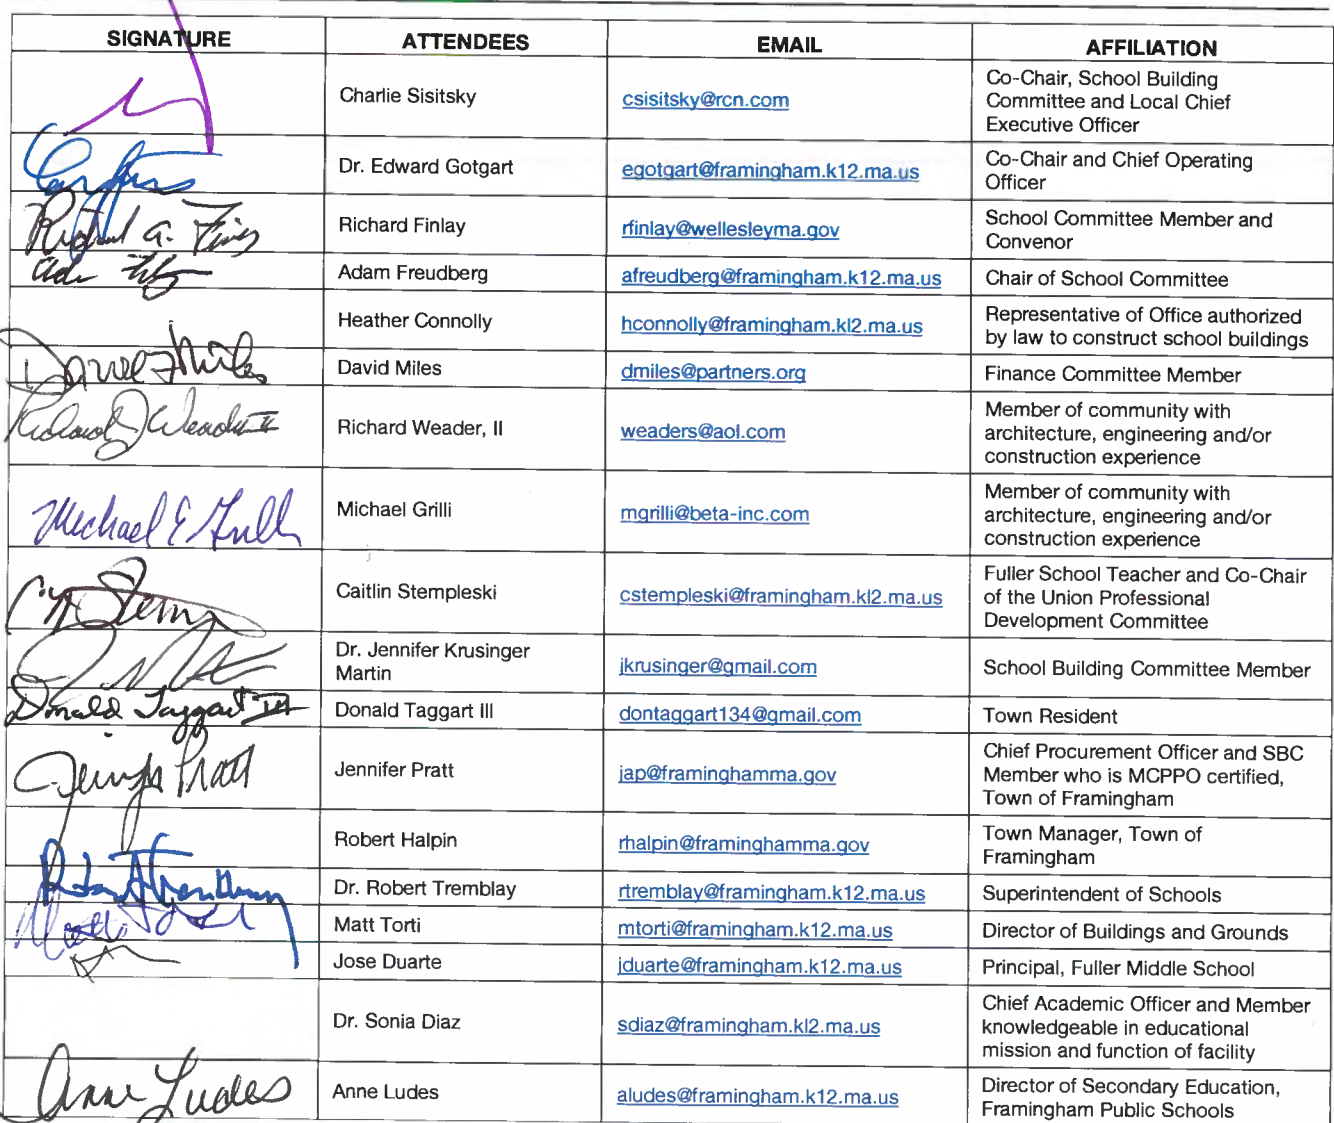 SIGNATURE ATTENDEES EMAIL AFFILIATION
Charlie Sisitsky csisitsky@rcn.com Co-Chair, School Building
Committee and Local Chief
Executive Officer
Dr. Edward Gotgart egotgart@framingham.k12.ma.us Co-Chair and Chief Operating
Officer
Richard A. Finlay Richard Finlay rfinlay@wellesleyma.gov School Committee Member and
Convenor
Adam Adam Freudberg afreudberg@framingham.k12.ma.us Chair of School Committee
Heather Connolly hconnolly@framingham.kl2.ma.us Representative of Office authorized
by law to construct school buildings
David Miles David Miles dmiles@partners.org Finance Committee Member
Richard J Weader II Richard Weader, II weaders@aol.com Member of community with
architecture, engineering and/or
construction experience
Michael E Grilli Michael Grilli mgrilli@beta-inc.com Member of community with
architecture, engineering and/or
construction experience
Caitlin Stempleski cstempleski@framingham.kl2.ma.us Fuller School Teacher and Co-Chair
of the Union Professional
Development Committee
Dr. Jennifer Krusinger
Martin jkrusinger@gmail.com School Building Committee Member
Donald Taggart III Donald Taggart III dontaggart134@gmail.com Town Resident
Jennifer Pratt Jennifer Pratt jap@framinghamma.gov Chief Procurement Officer and SBC
Member who is MCPPO certified,
Town of Framingham
Robert Halpin rhalpin@framinghamma.gov Town Manager, Town of
Framingham
Dr. Robert Tremblay rtremblay@framingham.k12.ma.us Superintendent of Schools
Matt Torti mtorti@framingham.k12.ma.us Director of Buildings and Grounds
Jose Duarte jduarte@framingham.k12.ma.us Principal, Fuller Middle School
Dr. Sonia Diaz sdiaz@framingham.kl2.ma.us Chief Academic Officer and Member
knowledgeable in educational
mission and function of facility
Anne Ludes Anne Ludes aludes@framingham.k12.ma.us Director of Secondary Education,
Framingham Public Schools